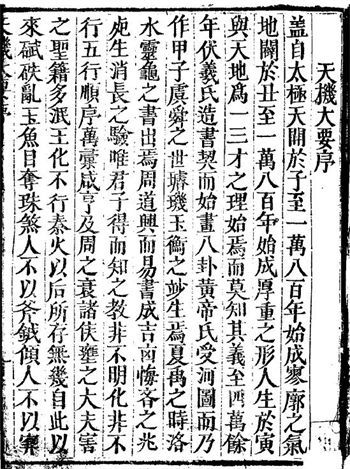 天機大要序
盖自太極天開於子至一萬八百年始成寥廓之氣
地闢於丑至一萬八百年始成厚重之形人生於寅
與天地爲一三才之理始焉而莫知其義至四萬餘
年伏羲氏造書契而始畫八卦黃帝氏受河圖而乃
作甲子虞舜之世璿璣玉衡之妙生焉夏禹之時洛
水靈龜之書出焉周道興而易書成吉凶悔吝之兆
始生消長之驗唯君子得而知之教非不明化非不
行五行順序萬彙咸亨及周之衰諸侯壅之大夫害
之聖籍多泯王化不行秦火以后所存無幾自此以
來碔砆亂玉魚目奪珠煞人不以斧鉞傾人不以穽